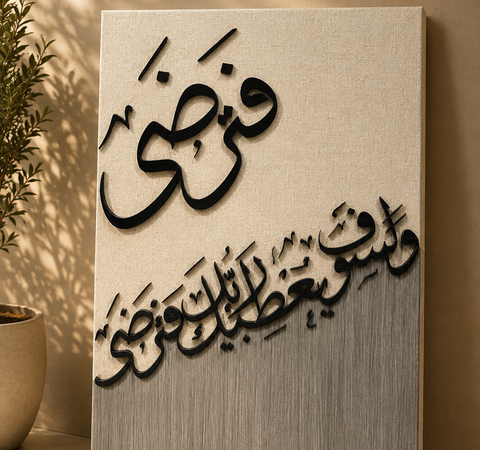 فترضى
ولسوف يعطيك ربك فترضى